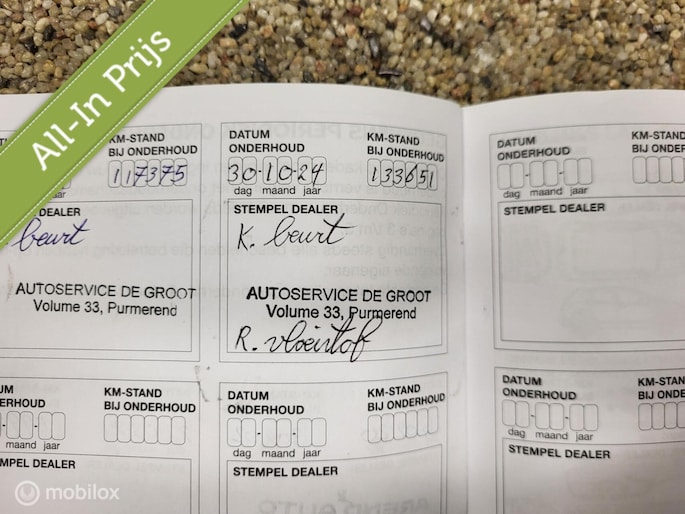 All-In Prijs
KM-STAND
BIJ ONDERHOUD
117375
maand jaar
DEALER
beurt
AUTOSERVICE DE GROOT
Volume 33, Purmerend
DATUM
ONDERHOUD
30-10-24
dag maand jaar
KM-STAND
BIJ ONDERHOUD
133651
STEMPEL DEALER
K. beurt
AUTOSERVICE DE GROOT
Volume 33, Purmerend
R. vloeistof
DATUM
ONDERHOUD
dag maand jaar
KM-STAND
BIJ ONDER
STEMPEL DEALER
UM
ONDERHOUD
maand jaar
KM-STAND
BIJ ONDERHOUD
MPEL DEALER
DATUM
ONDERHOUD
dag maand jaar
KM-STAND
BIJ ONDERHOUD
STEMPEL DEALER
DATUM
ONDERHOUD
dag maand jaar
KM-STAND
BIJ ONDERH
STEMPEL DEALER
mobilox